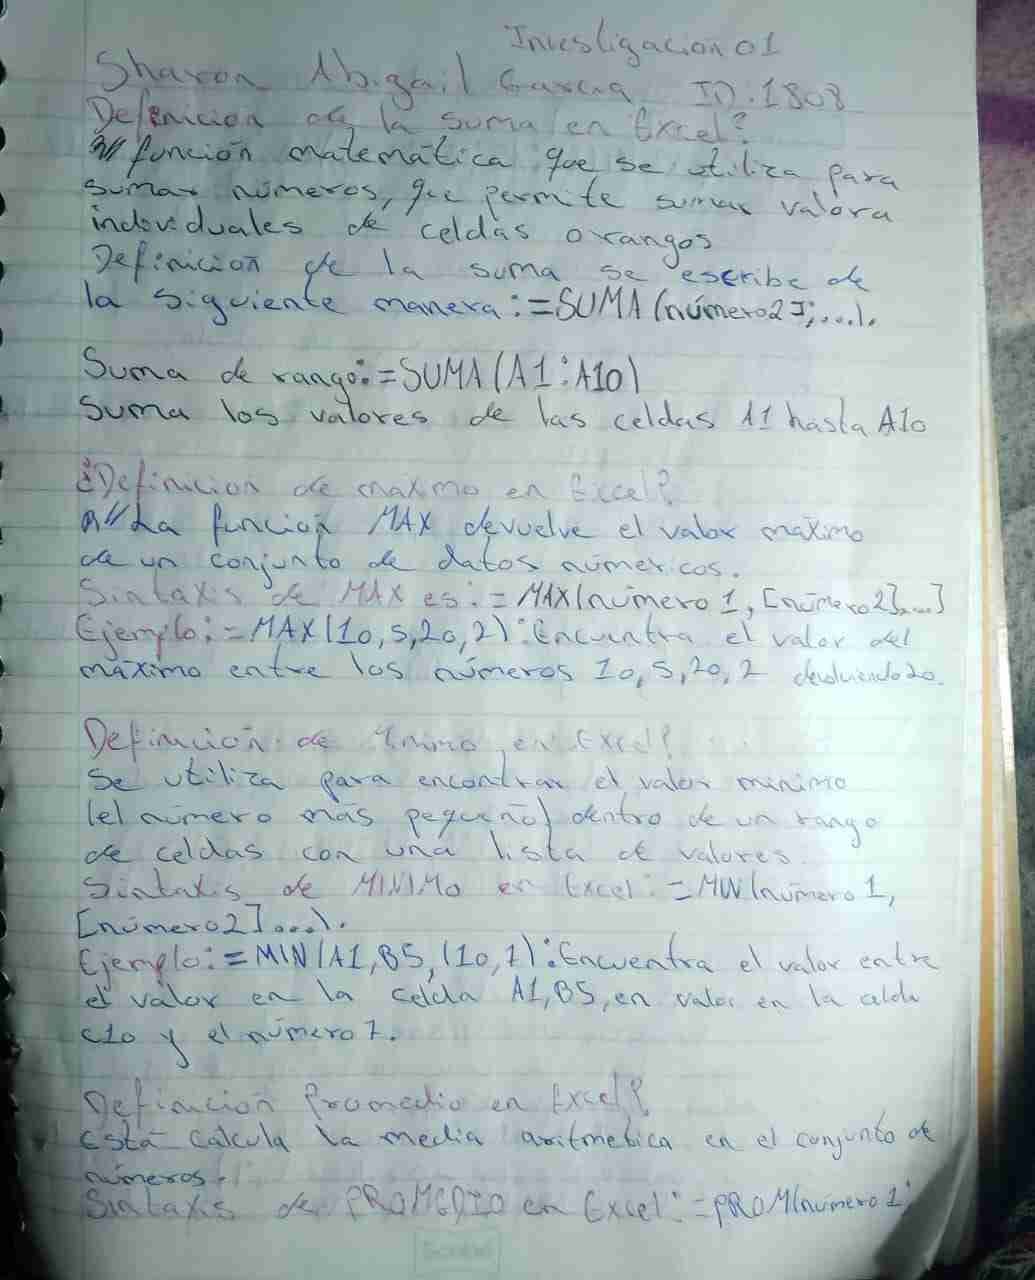 Investigación 01
Sharon Abigail Garcia ID:1808
Definicion de la suma en Excel?
R// función matemática que se utiliza para
sumar números, que permite sumar valora
individuales de celdas o rangos
Definicion de la suma se escribe de
la siguiente manera: =SUMA(número2];...).
Suma de rango: =SUMA(A1:A10)
Suma los valores de las celdas A1 hasta A10
¿Definicion de maxmo en Excel?
R// La función MAX devuelve el valor máximo
de un conjunto de datos númericos.
Sintaxis de MAX es: =MAX(número1,[número2],...]
Ejemplo: =MAX(10,5,20,2): Encuentra el valor del
máximo entre los números 10,5,20,2 devolviendo 20.
Definición de en Excel?
Se utiliza para encontrar el valor minimo
(el número más pequeño) dentro de un rango
de celdas con una lista de valores.
Sintaxis de MINIMO en Excel: =MIN(número1,
[número2]...).
Ejemplo: =MIN(A1,B5,(10,7): Encuentra el valor entre
el valor en la celda A1,B5, en valor en la celda
c10 y el número 7.
Definición Promedio en Excel?
Está calcula la media aritmetica en el conjunto de
números.
Sintaxis de PROMEDIO en Excel: =PROM(número1;